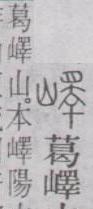 嶧葛嶧
葛嶧山。本嶧陽